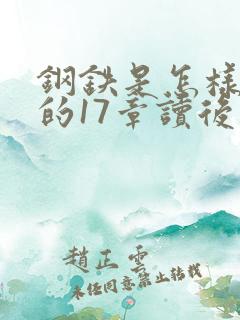 鋼鉄是怎樣
的17章讀後
趙正雲
未經同意禁止轉載